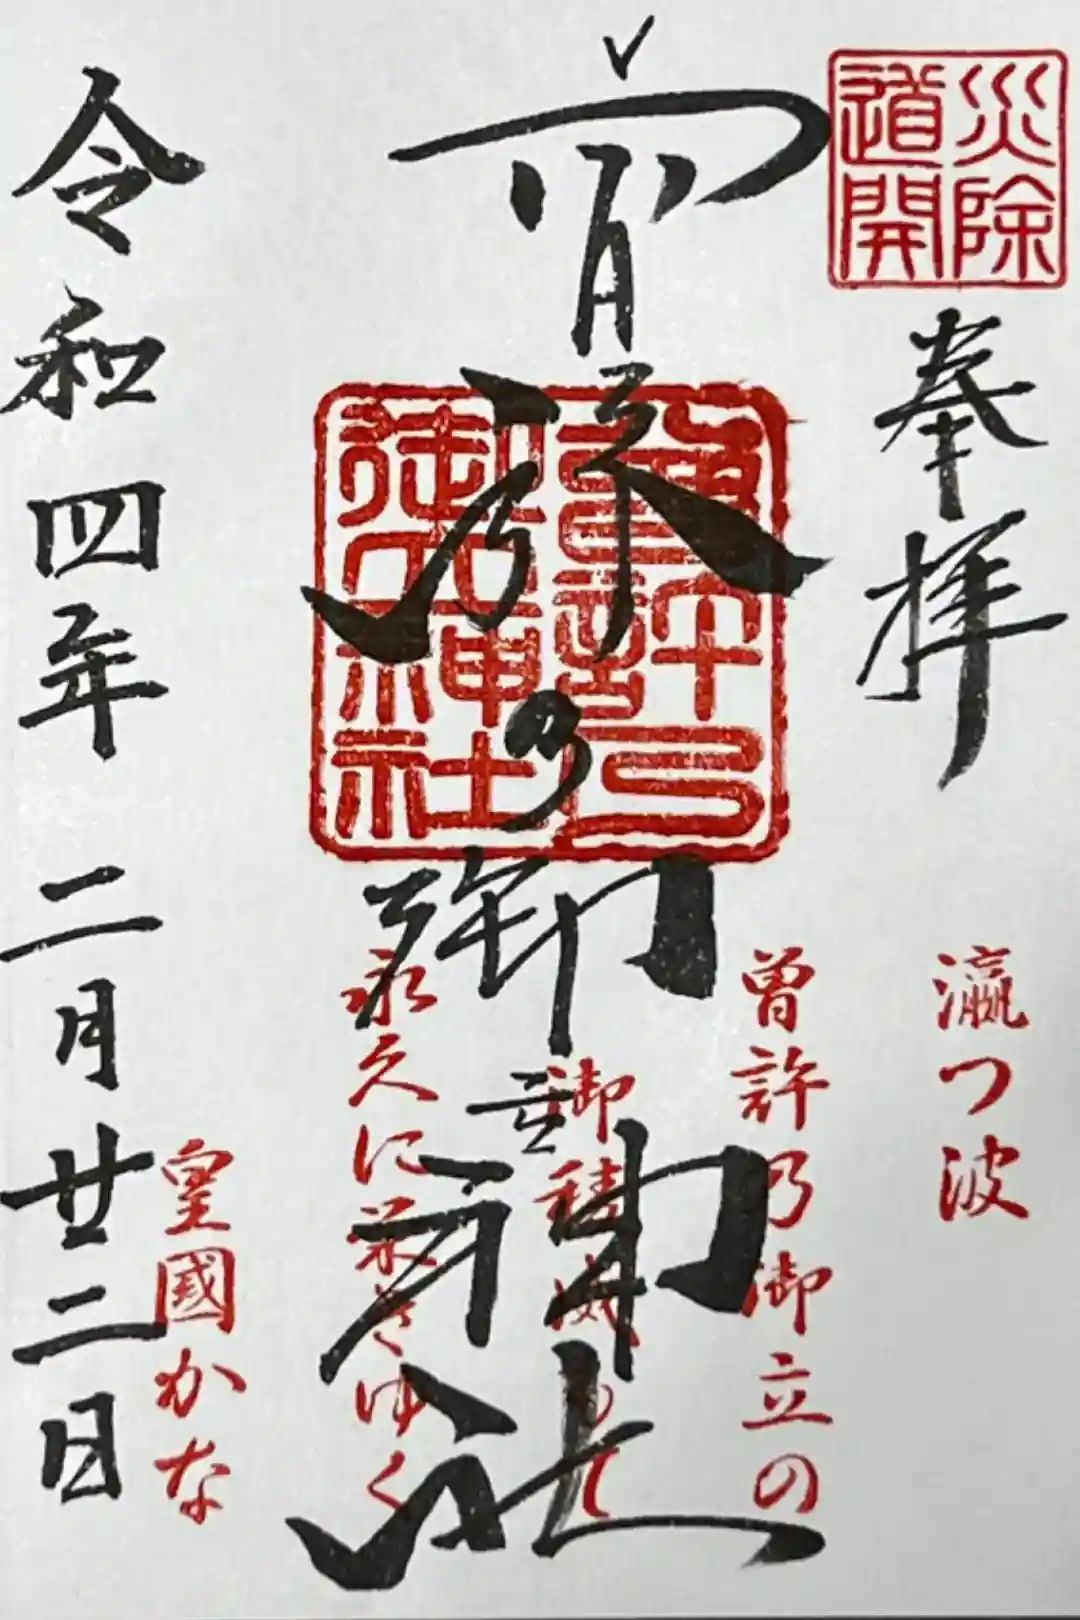 災除
道開
奉拝
乃御立神社
曾許乃
御立神社
瀛つ波
曽許乃御立の
御稜威もて
永久に栄えゆく
皇國かな
令和四年二月廿二日